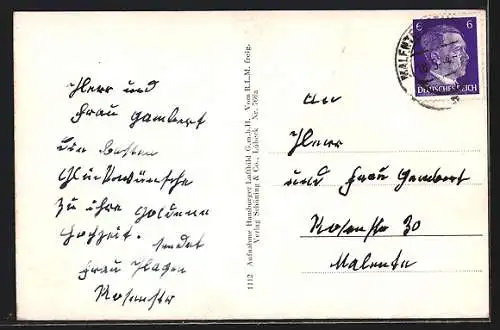 Herr und
Frau Gambert
Die besten
Glückwünsche
zu ihre Goldene
Hochzeit. sendet
Frau Hagen
Rosenstr
1112 Aufnahme Hamburger Luftbild G.m.b.H. Vom R.L.M. freig.
Verlag Schöning & Co., Lübeck Nr. 769a
An
Herr
und Frau Gambert
Rosenstr 30
Malente
6 6
DEUTSCHES REICH
MALENTE